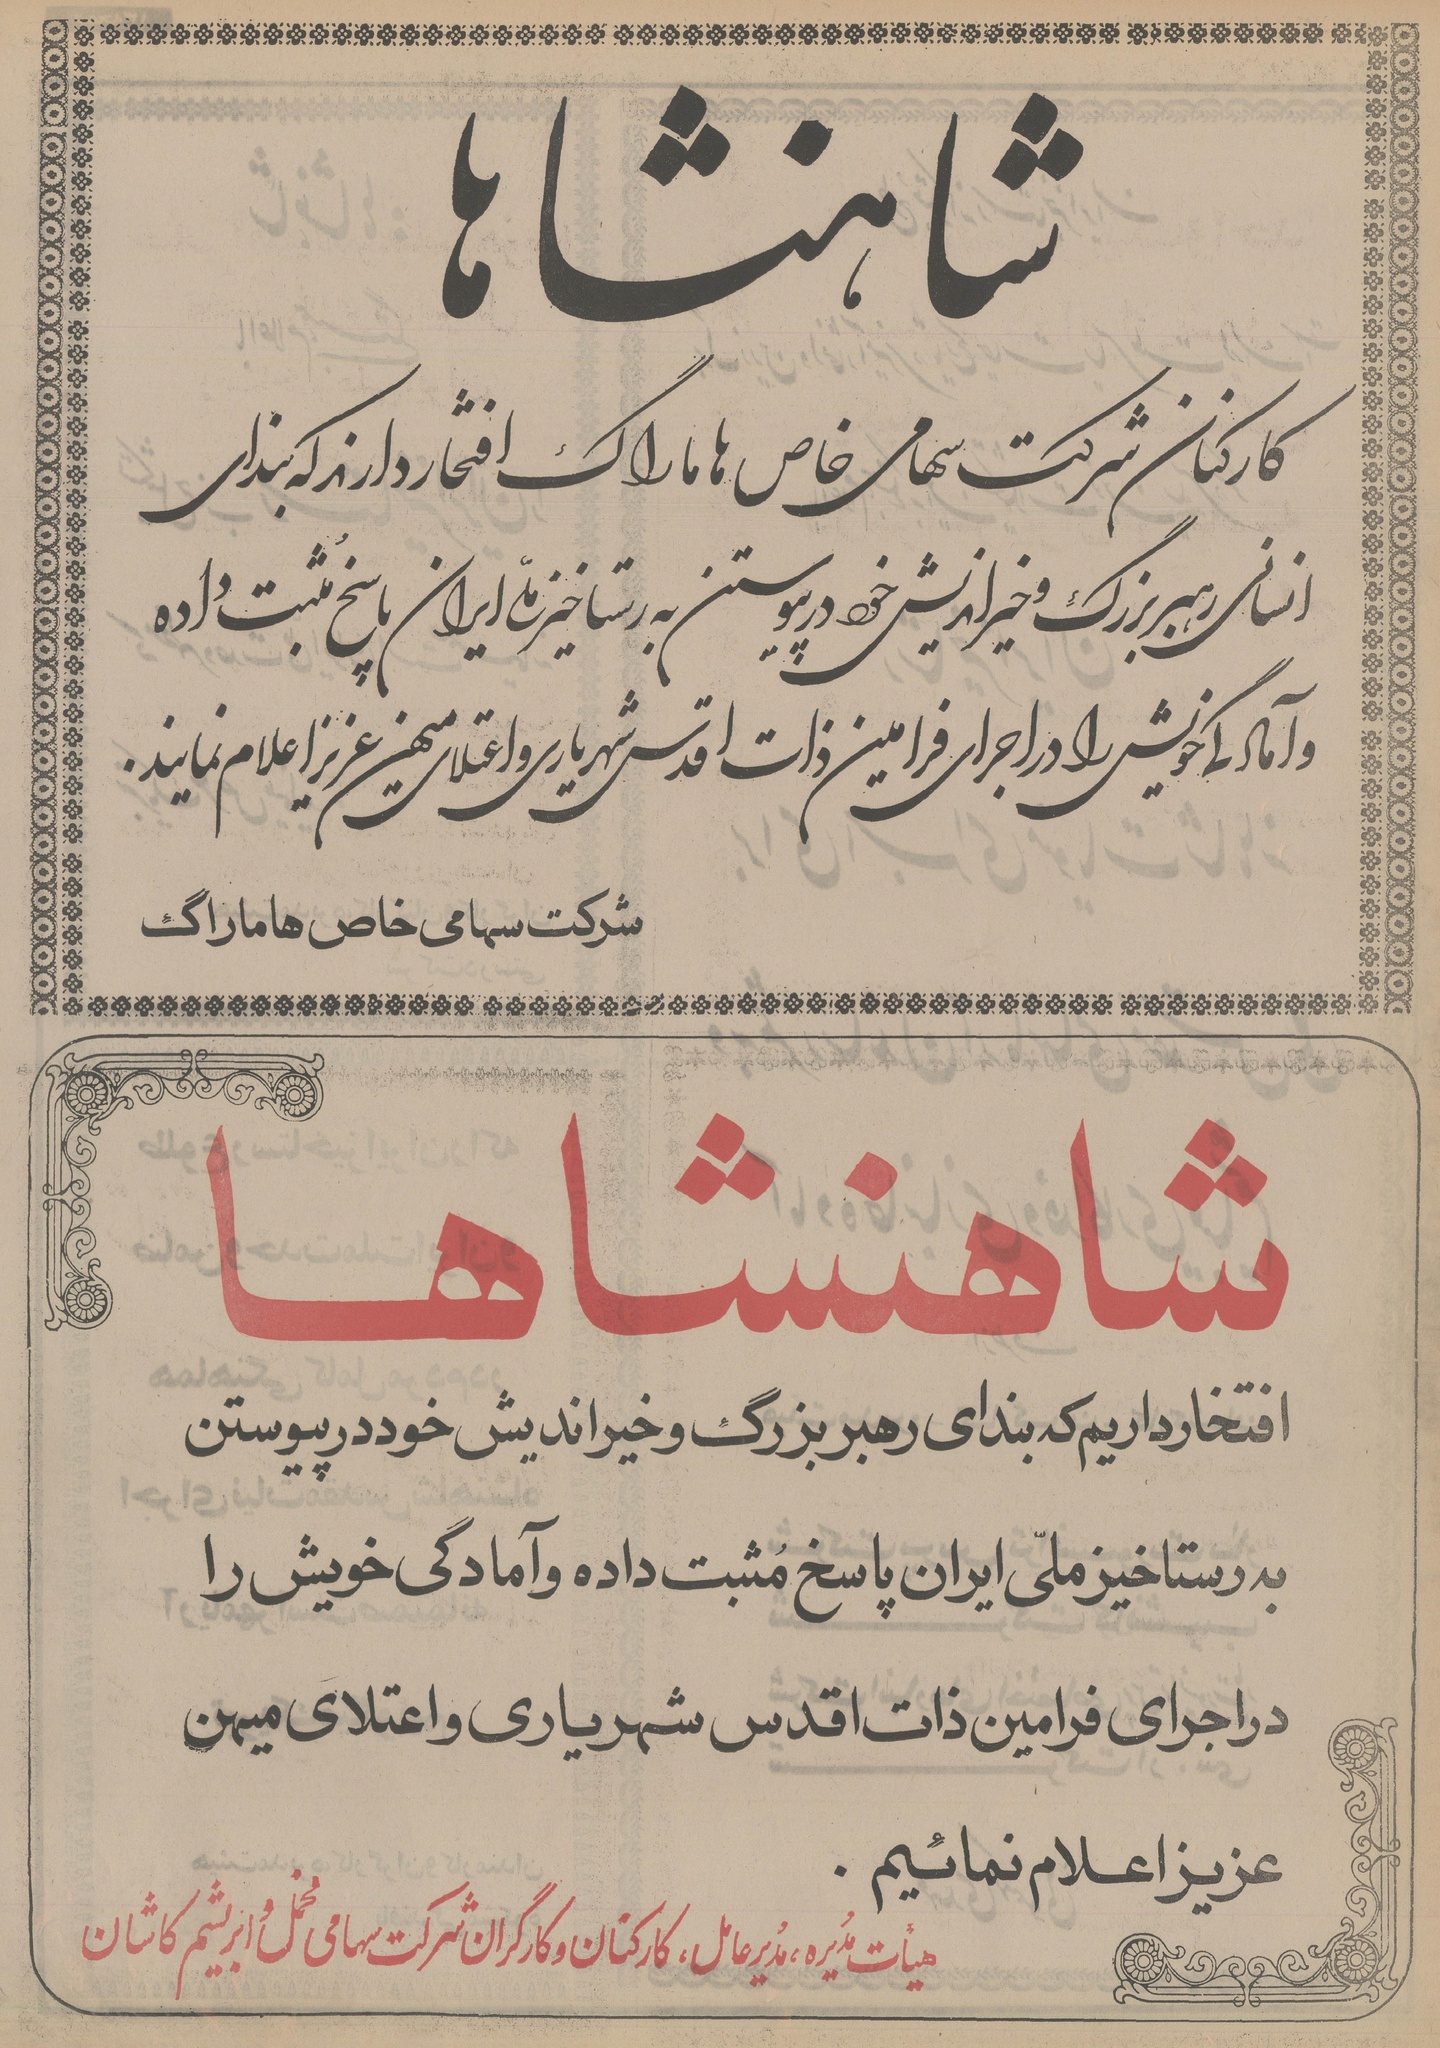 شاهنشاها
کارکنان شرکت سهامی خاص هاماراگ افتخار دارند که بندای
انسانی رهبر بزرگ و خیراندیش خود در پیوستن به رستاخیز ملّی ایران پاسخ مُثبت داده
و آمادگی خویش را در اجرای فرامین ذات اقدس شهریاری و اعتلای میهن عزیز اعلام نمایند.
شرکت سهامی خاص هاماراگ
شاهنشاها
افتخار داریم که بندای رهبر بزرگ و خیراندیش خود در پیوستن
به رستاخیز ملّی ایران پاسخ مُثبت داده و آمادگی خویش را
در اجرای فرامین ذات اقدس شهریاری و اعتلای میهن
عزیز اعلام نمائیم .
هیأت مُدیره ، مُدیر عامل ، کارکنان و کارگران شرکت سهامی مخمل و ابریشم کاشان